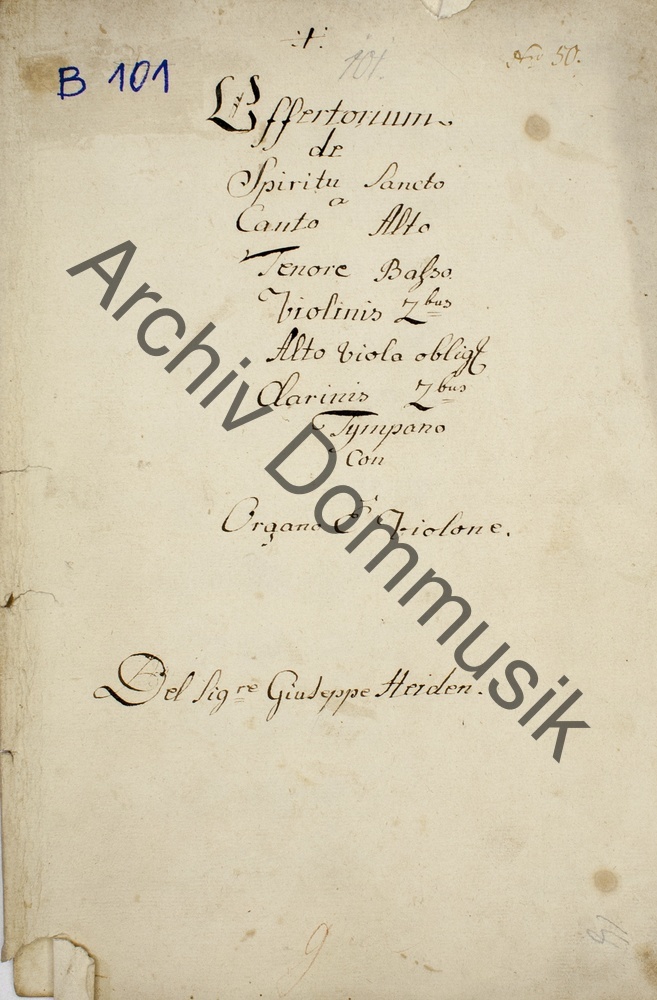 101.
No 50.
B 101
Offertorium
de
Spiritu Sancto
a
Canto Alto
Tenore Basso.
Violinis 2bus
Alto Viola oblig
Clarinis 2bus
Tympano
Con
Organo è Violone.
Del Sigre Giuseppe Heiden.
Archiv Dommusik
9